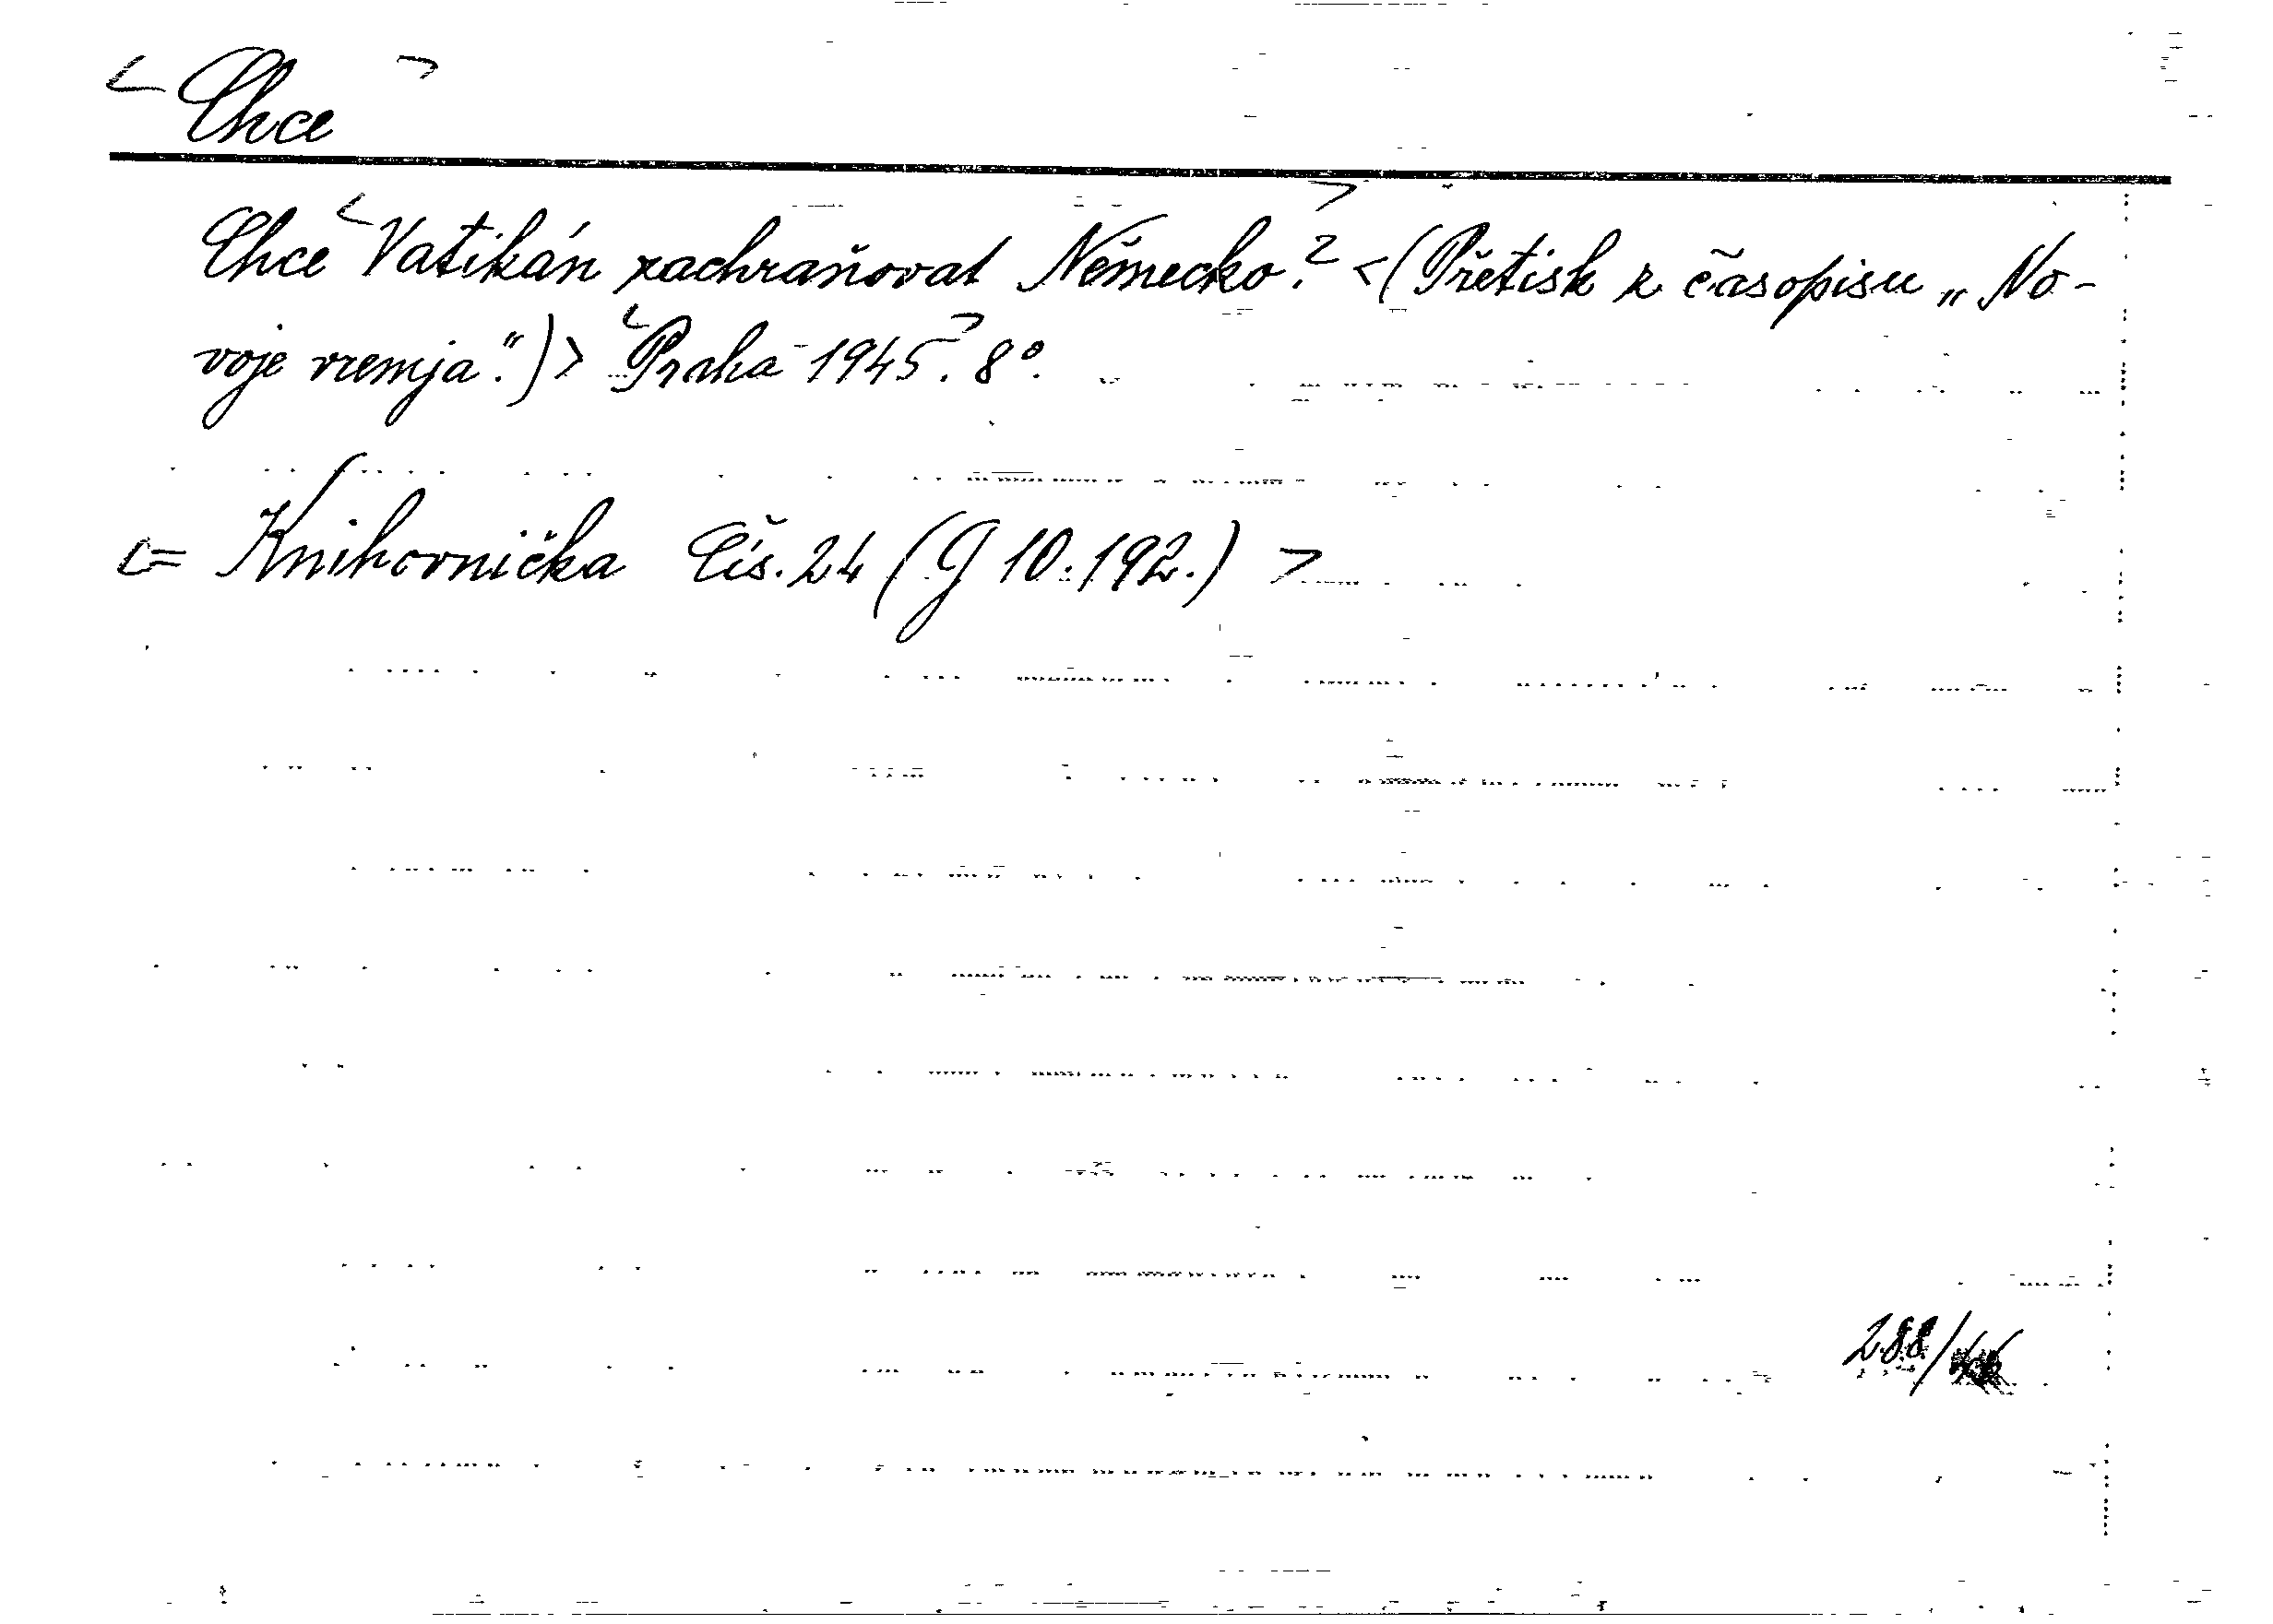 < Chce >
Chce < Vatikán zachraňovat Německo? > <(Přetisk z časopisu „No-
voje vremja“.)> < Praha 1945. > 8°.
<= Knihovnička Čís. 24 (G 10.192.) >
288/